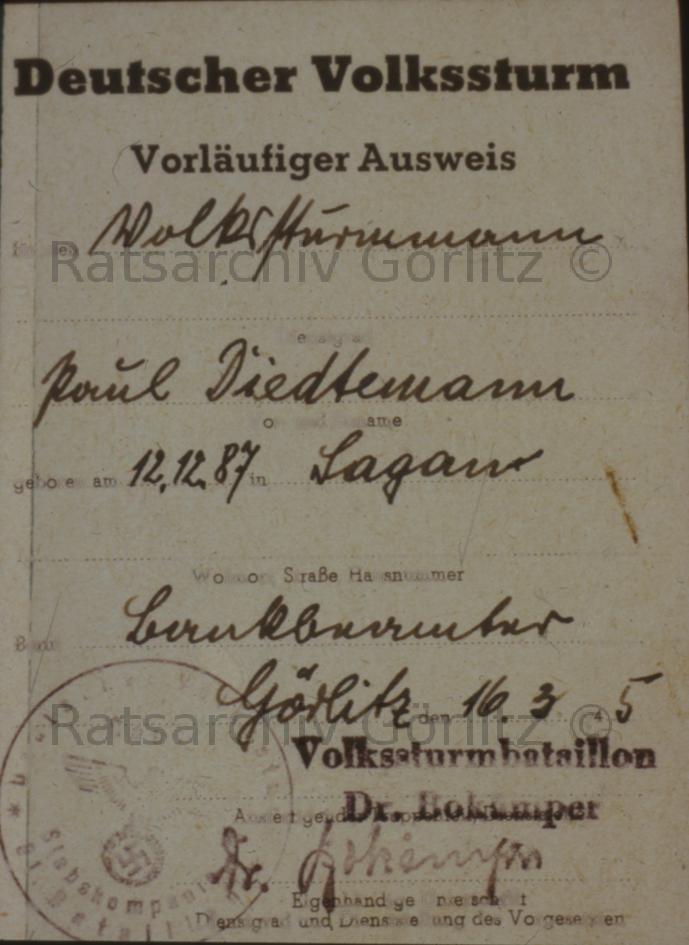 Deutscher Volkssturm
Vorläufiger Ausweis
Volkssturmmann
Ratsarchiv Görlitz ©
Paul Diedtemann
geboren am 12.12.87 in Sagan
Wohnort Straße Hausnummer
Beruf Bankbeamter
Görlitz den 16. 3 45
Ratsarchiv Görlitz ©
Volkssturmbataillon
Dr. Bokämper
Dr. Bokämper
Stabskompanie
Eigenhändige Unterschrift
Dienstgrad und Dienststellung des Vorgesetzten